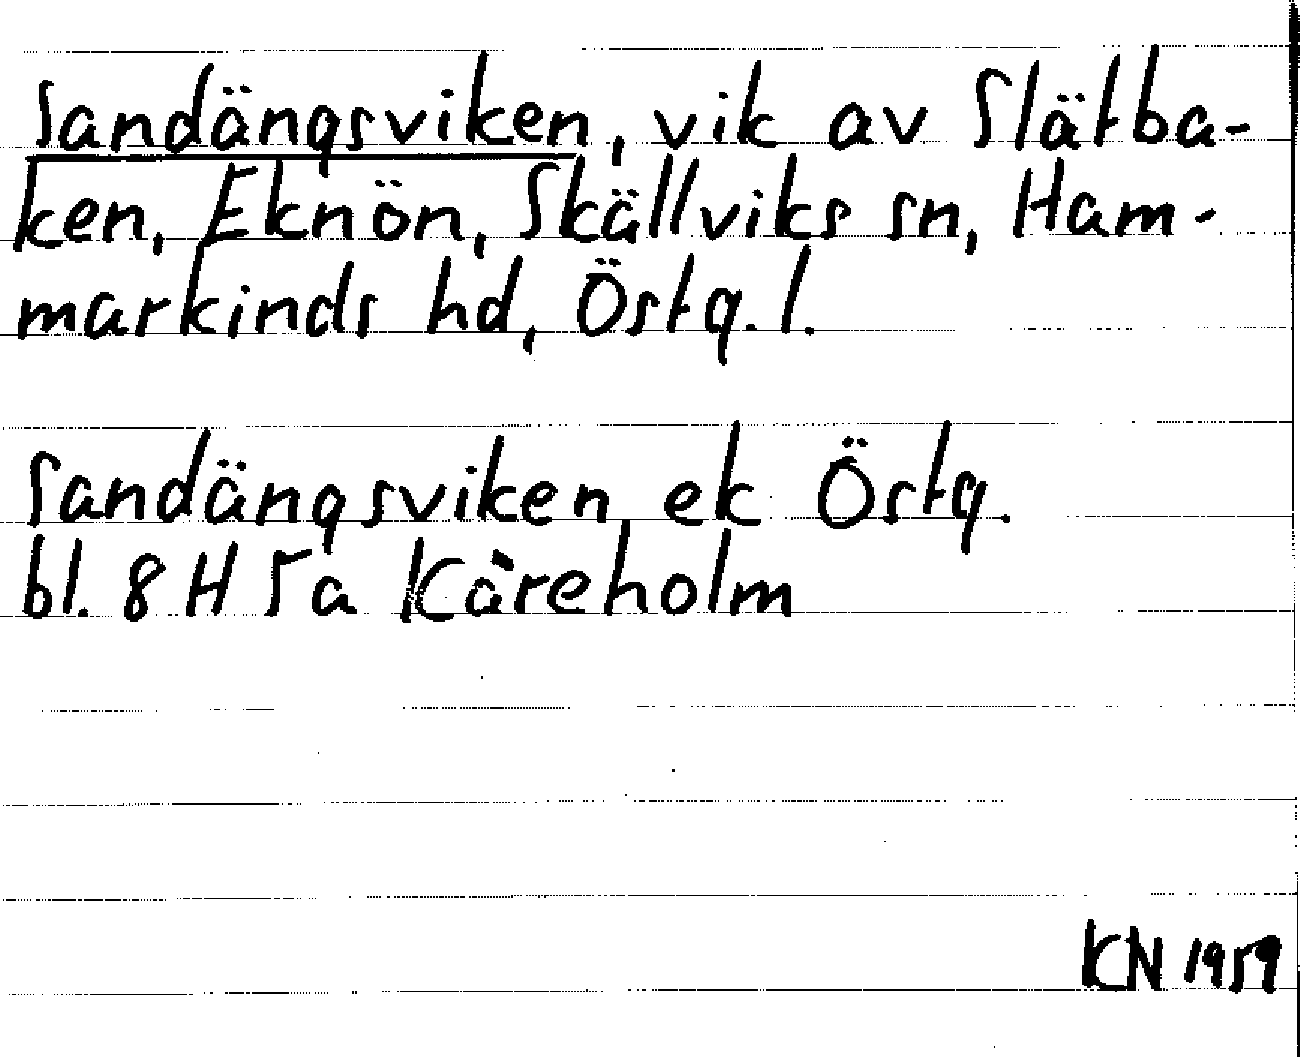 Sandängsviken, vik av Slätba-
ken, Eknön, Skällviks sn, Ham-
markinds hd, Östg. l.
Sandängsviken ek Östg.
bl. 8 H 5a Kåreholm
KN 1959